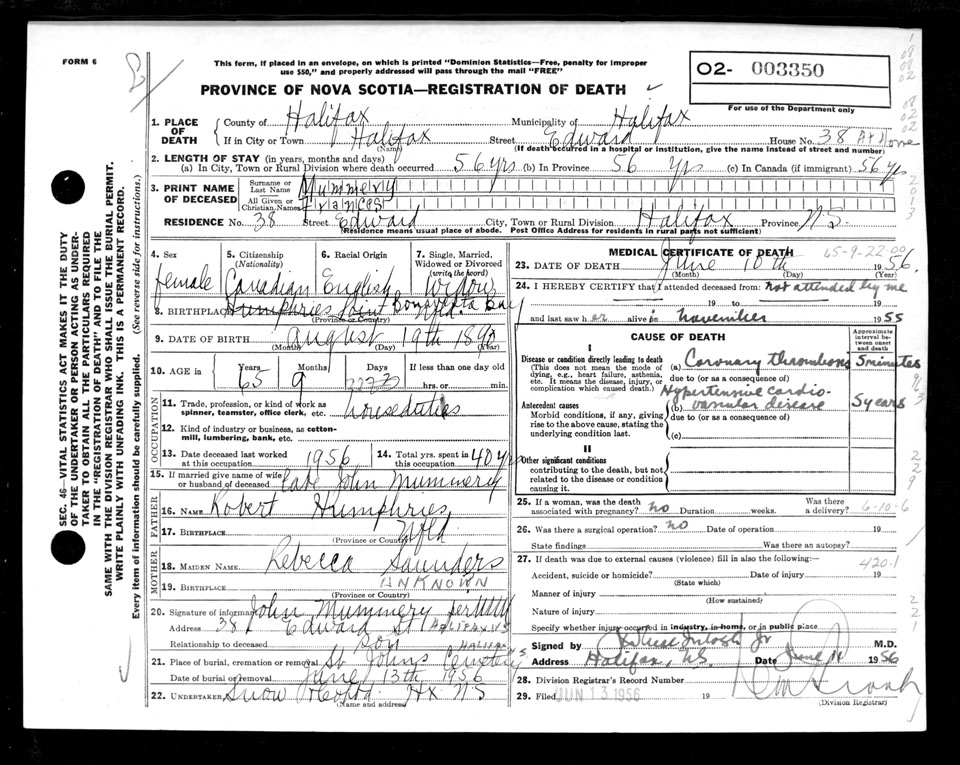 FORM 6
This form, if placed in an envelope, on which is printed "Dominion Statistics—Free, penalty for improper
use $50," and properly addressed will pass through the mail "FREE"
O2- 003350
PROVINCE OF NOVA SCOTIA—REGISTRATION OF DEATH
For use of the Department only
1. PLACE OF DEATH County of Halifax Municipality of Halifax
If in City or Town Halifax Street Edward House No. 38 At Home
(Name) (If death occurred in a hospital or institution, give the name instead of street and number)
2. LENGTH OF STAY (in years, months and days)
(a) In City, Town or Rural Division where death occurred 56 yrs. (b) In Province 56 yrs (c) In Canada (if immigrant) 56 yrs
3. PRINT NAME OF DECEASED Surname or Last Name Mummery
All Given or Christian Names Frances
RESIDENCE No. 38 Street Edward City, Town or Rural Division Halifax Province N.S.
(Residence means usual place of abode. Post Office Address for residents in rural parts not sufficient)
4. Sex female
5. Citizenship (Nationality) Canadian
6. Racial Origin English
7. Single, Married, Widowed or Divorced (write the word) Widow
8. BIRTHPLACE Humphries Point Bonavista Bay Nfld.
(Province or Country)
9. DATE OF BIRTH August 19th 1890
(Month) (Day) (Year)
10. AGE in Years 65 Months 9 Days If less than one day old hrs. or min.
OCCUPATION
11. Trade, profession, or kind of work as spinner, teamster, office clerk, etc. house duties
12. Kind of industry or business, as cotton-mill, lumbering, bank, etc.
13. Date deceased last worked at this occupation 1956
14. Total yrs. spent in this occupation 40 yrs
15. If married give name of wife or husband of deceased late John Mummery
FATHER
16. NAME Robert Humphries
17. BIRTHPLACE Nfld
(Province or Country)
MOTHER
18. MAIDEN NAME Rebecca Saunders
19. BIRTHPLACE UNKNOWN
(Province or Country)
20. Signature of informant John Mummery per
Address 38 Edward St HALIFAX N.S
Relationship to deceased son
21. Place of burial, cremation or removal St Johns Cemetery HALIFAX N.S
Date of burial or removal June 13th 1956
22. UNDERTAKER Snow Hx N S
(Name and address)
MEDICAL CERTIFICATE OF DEATH
65-9-22-00
23. DATE OF DEATH June 10th 1956.
(Month) (Day) (Year)
24. I HEREBY CERTIFY that I attended deceased from: not attended by me
19 to 19
and last saw h er alive on november 1955
CAUSE OF DEATH
Approximate interval between onset and death
I
Disease or condition directly leading to death
(This does not mean the mode of dying, e.g., heart failure, asthenia, etc. It means the disease, injury, or complication which caused death.)
(a) Coronary thrombosis 5 minutes
due to (or as a consequence of)
Antecedent causes
Morbid conditions, if any, giving rise to the above cause, stating the underlying condition last.
(b) Hypertensive cardio-vascular disease 5 years
due to (or as a consequence of)
(c)
II
Other significant conditions
contributing to the death, but not related to the disease or condition causing it.
25. If a woman, was the death associated with pregnancy? no Duration weeks. Was there a delivery? 6-10-6
26. Was there a surgical operation? no Date of operation 19
State findings Was there an autopsy?
27. If death was due to external causes (violence) fill in also the following: 420.1
Accident, suicide or homicide? Date of injury 19
(State which)
Manner of injury
(How sustained)
Nature of injury
Specify whether injury occurred in industry, in home, or in public place
Signed by M.D.
Address Halifax, N.S. Date June 11 1956
28. Division Registrar's Record Number
29. Filed JUN 13 1956 19
(Division Registrar)
SEC. 46—VITAL STATISTICS ACT MAKES IT THE DUTY
OF THE UNDERTAKER OR PERSON ACTING AS UNDER-
TAKER TO OBTAIN ALL THE PARTICULARS REQUIRED
IN THE "REGISTRATION OF DEATH" AND TO FILE THE
SAME WITH THE DIVISION REGISTRAR WHO SHALL ISSUE THE BURIAL PERMIT.
WRITE PLAINLY WITH UNFADING INK. THIS IS A PERMANENT RECORD.
Every item of information should be carefully supplied. (See reverse side for instructions.)